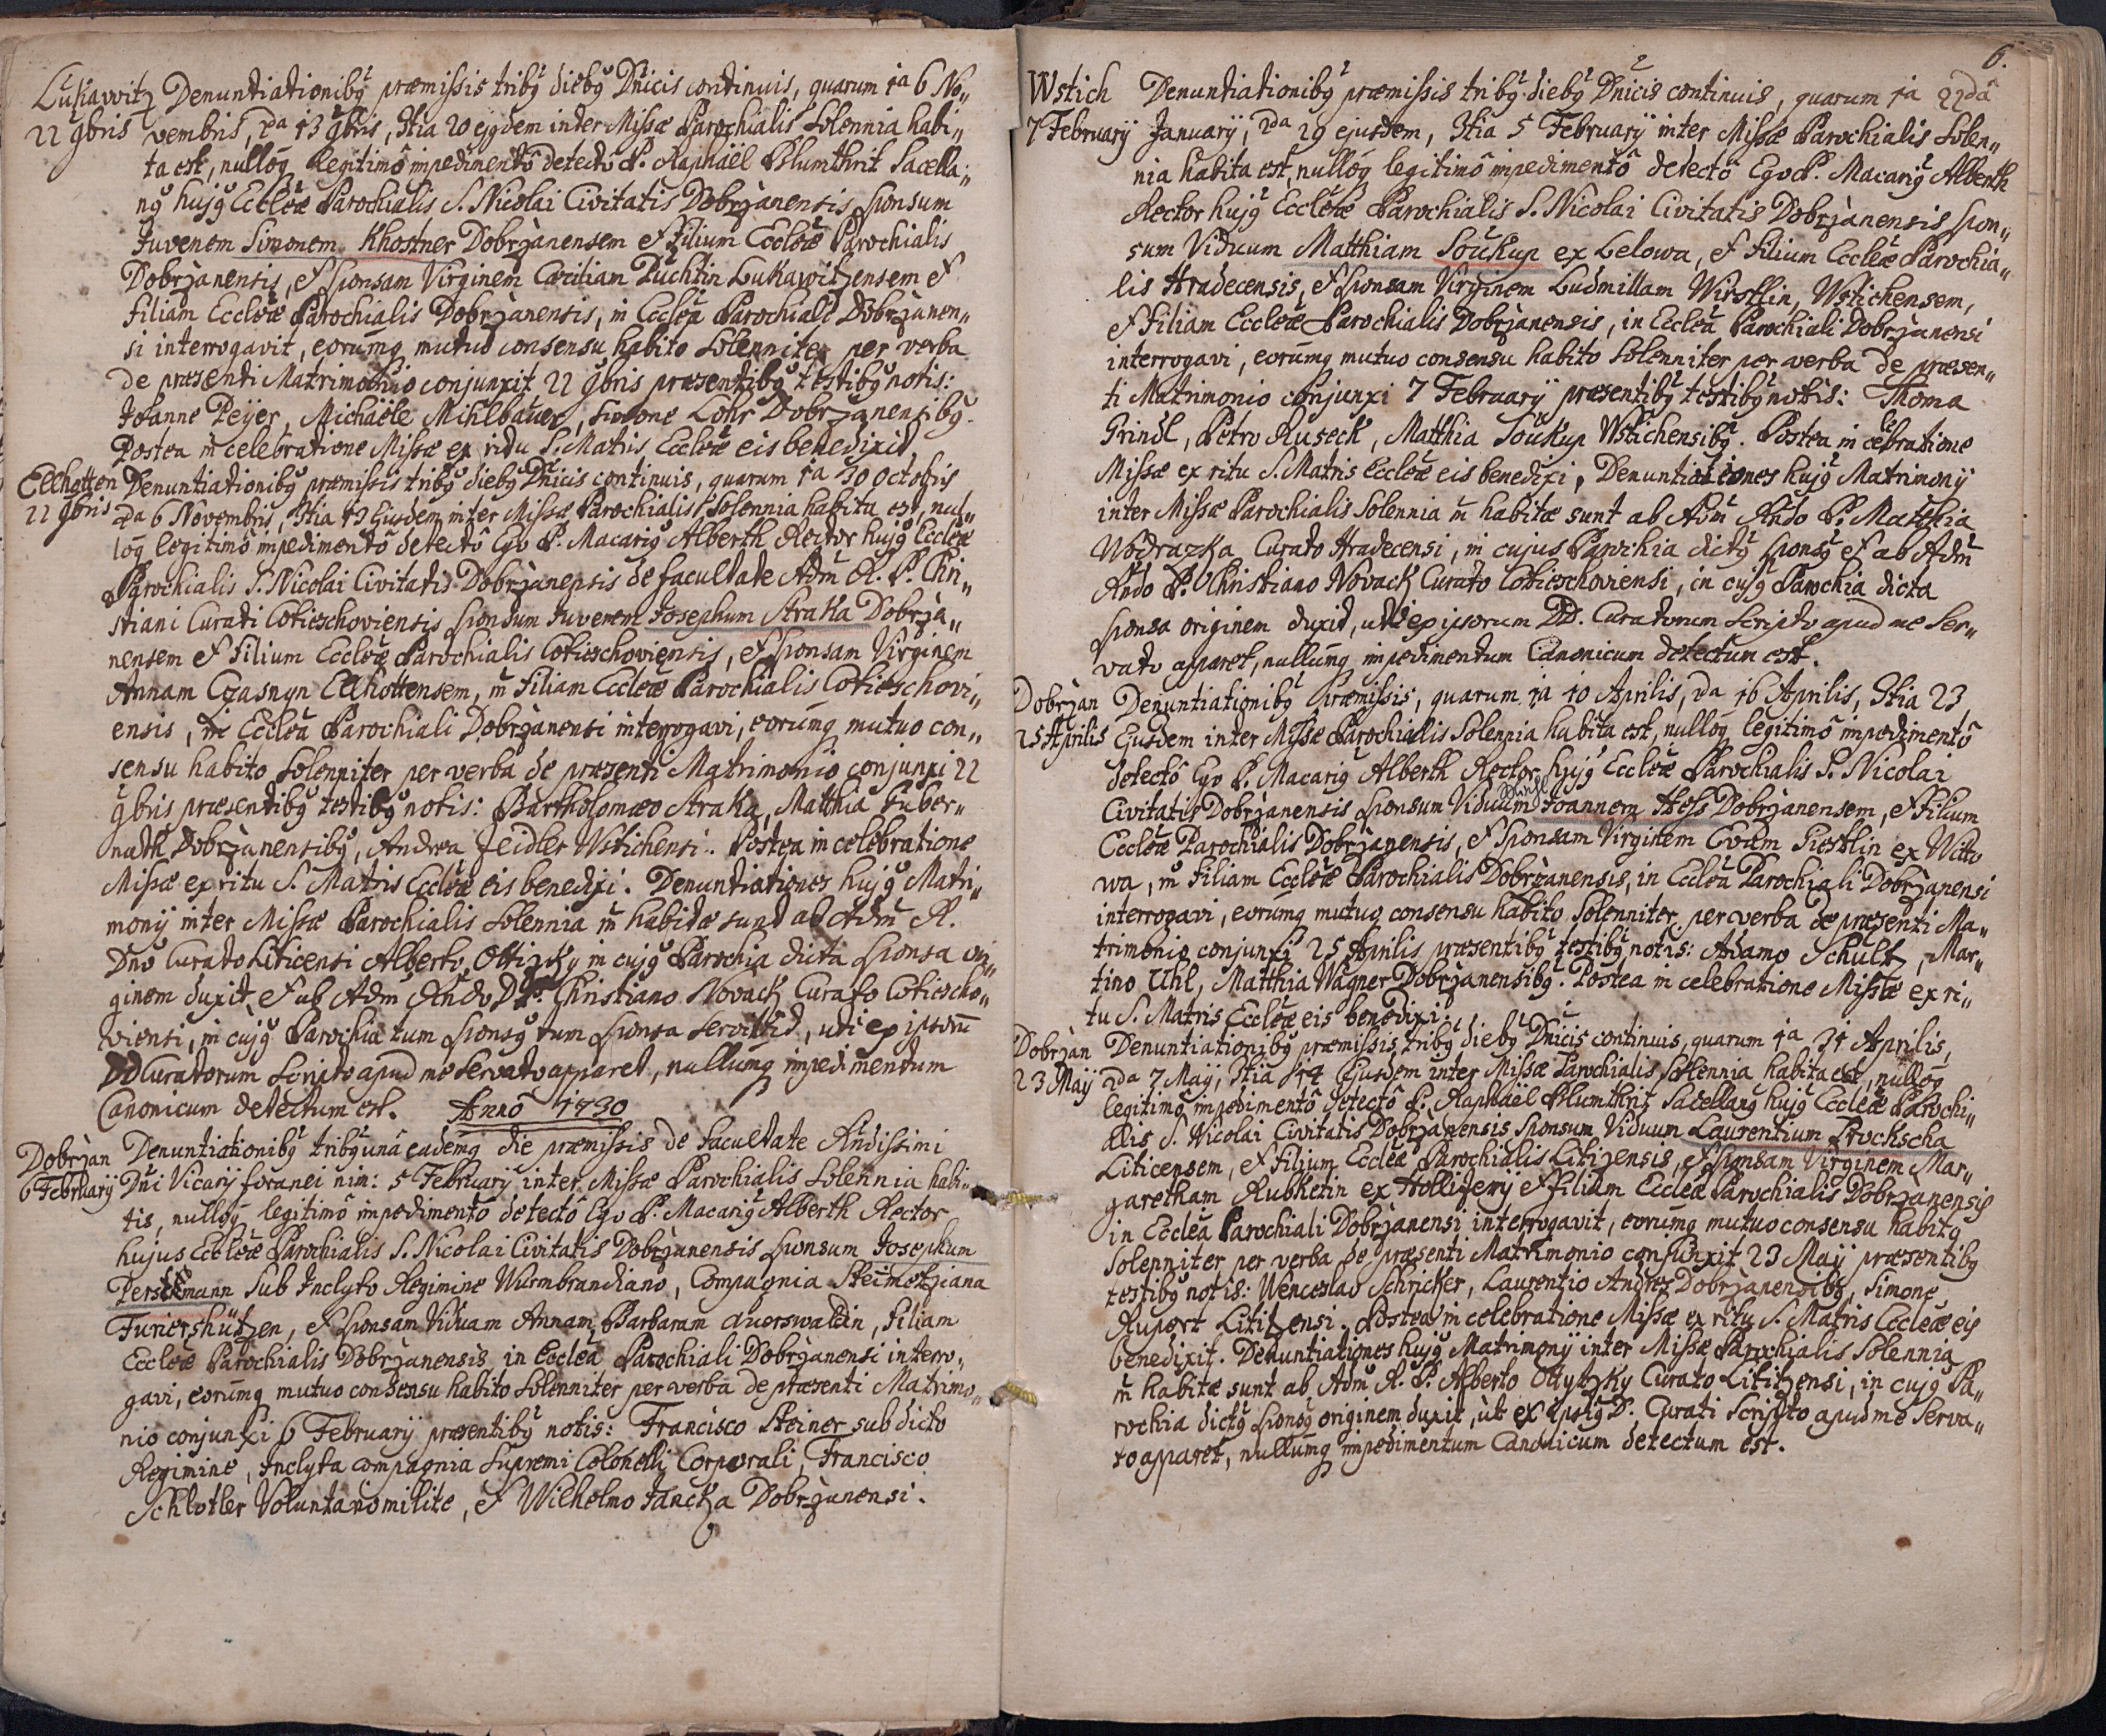 Lukawitz Denuntiationibg præmissis tribg diebg Dnicis continuis, quarum 1a 6 No„
22 9bris vembris, 2da 13 9bris, 3tia 20 ejgdem inter Missæ Parochialis Solennia habi„
ta est, nulloq legitimô impedimentô detectô P. Raphaël Blumthrit Sacella„
ng hujg Eccleæ Parochialis S. Nicolai Civitatis Dobrzanensis sponsum
Juvenem Simonem Khostner Dobrzanensem et Filium Eccleæ Parochialis
Dobrzanensis, et sponsam Virginem Cæciliam Puchtin Lukawitzensem et
filiam Eccleæ Parochialis Dobrzanensis, in Ecclea Parochiali Dobrzanen„
si interrogavit, eorumq mutuo consensu habito Solenniter per verba
de præsenti Matrimonio conjunxit 22 9bris præsentibg testibg notis:
Joanne Peyer, Michaële Mihlbauer, Simone Lohr Dobrzanensibg.
Postea in celebratione Missæ ex ritu S. Matris Eccleæ eis benedixit.
Ellhotten Denuntiationibg præmissis tribg diebg Dnicis continuis, quarum 1a 30 Octobris
22 9bris 2da 6 Novembris, 3tia 13 Ejusdem inter Missæ Parochialis Solennia habita est, nul„
loq legitimô impedimentô detectô Ego P. Macarig Alberth Rector hujg Eccleæ
Parochialis S. Nicolai Civitatis Dobrzanensis de facultate Adm R. P. Chri„
stiani Curati Cotieschoviensis sponsum Juvenem Josephum Straka Dobrza„
nensem et Filium Eccleæ Parochialis Cotieschoviensis, et sponsam Virginem
Annam Czasnyn Ellhottensem, ñ Filiam Eccleæ Parochialis Cotieschovi„
ensis, in Ecclea Parochiali Dobrzanensi interrogavi, eorumq mutuo con„
sensu habito Solenniter per verba de præsenti Matrimonio conjunxi 22
9bris præsentibg testibg notis: Bartholomæo Straka, Matthia Guber„
nath Dobrzanensibg, Andrea Zeidler Wstichensi. Postea in celebratione
Missæ ex ritu S. Matris Eccleæ eis benedixi. Denuntiationes hujg Matri„
monij inter Missæ Parochialis Solennia ñ habitæ sunt ab Adm R.
Dno Curato Liticensi Alberto Ottizky in cujg Parochia dicta sponsa ori„
ginem duxit, et ab Adm Rndo D P. Christiano Novack Curato Cotiescho„
viensi, in cujg Parochia tum sponsg tum sponsa servivit, uti ex ipsoru
DD Curatorum Scripto apud me servato apparet, nullumq impedimentum
Canonicum detectum est. Annô 1730
Dobrzan Denuntiationibg tribg unâ eademq die præmissis de facultate Rndissimi
6 February Dni Vicarij foranei nim: 5 February inter Missæ Parochialis Solennia habi„
tis, nulloq legitimô impedimentô detectô Ego P. Macarig Alberth Rector
hujus Eccleæ Parochialis S. Nicolai Civitatis Dobrzanensis sponsum Josephum
Persckmann sub Inclyto Regimine Wurmbrandiano, Compagnia Steimetziana
Furiershützen, et sponsam Viduam Annam Barbaram Auerswaldin, Filiam
Eccleæ Parochialis Dobrzanensis in Ecclea Parochiali Dobrzanensi interro„
gavi, eorumq mutuo consensu habito Solenniter per verba de præsenti Matrimo„
nio conjunxi 6 February præsentibg notis: Francisco Steiner sub dicto
Regimine, Inclyta compagnia Supremi Colonelli Corporali, Francisco
Schlotler Voluntario milite, et Wilhelmo Jancka Dobrzanensi.
6.
Wstich Denuntiationibg præmissis tribg diebg Dnicis continuis, quarum 1a 22da
7 February January, 2da 29 ejusdem, 3tia 5 February inter Missæ Parochialis Solen„
nia habita est, nulloq legitimô impedimentô detectô Ego P. Macarig Alberth
Rector hujg Eccleæ Parochialis S. Nicolai Civitatis Dobrzanensis spon„
sum Viduum Matthiam Soukup ex Lelowa, et Filium Eccleæ Parochia„
lis Hradecensis, et sponsam Virginem Ludmillam Wirstlin, Wstichensem,
et Filiam Eccleæ Parochialis Dobrzanensis, in Ecclea Parochiali Dobrzanensi
interrogavi, eorumq mutuo consensu habito Solenniter per verba de præsen„
ti Matrimonio conjunxi 7 February præsentibg testibg notis: Thoma
Grindl, Petro Ruseck, Matthia Soukup Wstichensibg. Postea in celebratione
Missæ ex ritu S. Matris Eccleæ eis benedixi, Denuntiationes hujg Matrimonij
inter Missæ Parochialis Solennia ñ habitæ sunt ab Adm Rndo P. Matthia
Wodrazka Curato Hradecensi, in cujus Parochia dictg sponsg et ab Adm
Rndo P. Christiano Novack Curato Cotieschoviensi, in cujg Parochia dicta
sponsa originem duxit, uti ex ipsorum DD. Curatorum Scripto apud me ser„
vato apparet, nullumq impedimentum Canonicum detectum est.
Dobrzan Denuntiationibg præmissis, quarum 1a 10 Aprilis, 2da 16 Aprilis, 3tia 23
25 Aprilis Ejusdem inter Missæ Parochialis Solennia habita est, nulloq legitimô impedimentô
detectô Ego P. Macarig Alberth Rector hujg Eccleæ Parochialis S. Nicolai
Civitatis Dobrzanensis sponsum Viduum Joannem Hess Dobrzanensem, et Filium
Eccleæ Parochialis Dobrzanensis, et sponsam Virginem Evam Giestlin ex Witto
wa, ñ Filiam Eccleæ Parochialis Dobrzanensis, in Ecclea Parochiali Dobrzanensi
interrogavi, eorumq mutuo consensu habito Solenniter per verba de præsenti Ma„
trimonio conjunxi 25 Aprilis præsentibg testibg notis: Adamo Schultz, Mar„
tino Uhl, Matthia Wagner Dobrzanensibg. Postea in celebratione Missæ ex ri„
tu S. Matris Eccleæ eis benedixi.
Dobrzan Denuntiationibg præmissis tribg diebg Dnicis continuis, quarum 1a 31 Aprilis,
23 Maij 2da 7 Maij, 3tia 14 Ejusdem inter Missæ Parochialis Solennia habita est, nulloq
legitimô impedimentô detectô P. Raphaël Blumthrit Sacellang hujg Eccleæ Parochi„
alis S. Nicolai Civitatis Dobrzanensis sponsum Viduum Laurentium Prockscha
Liticensem, et Filium Eccleæ Parochialis Litizensis, et sponsam Virginem Mar„
garetham Rubketin ex Hollifern et filiam Eccleæ Parochialis Dobrzanensis
in Ecclea Parochiali Dobrzanensi interrogavit, eorumq mutuo consensu habito
Solenniter per verba de præsenti Matrimonio conjunxit 23 Maij præsentibg
testibg notis: Wenceslao Schricker, Laurentio Andres Dobrzanensibg, Simone
Rupert Lititzensi. Postea in celebratione Missæ ex ritu S. Matris Eccleæ eis
benedixit. Denuntiationes hujg Matrimonij inter Missæ Parochialis Solennia
ñ habitæ sunt ab Adm R. P. Alberto Ottytzky Curato Lititzensi, in cujg Pa„
rochia dictg sponsg originem duxit, ut ex ipsig D. Curati Scripto apud me serva„
to apparet, nullumq impedimentum Canonicum detectum est.